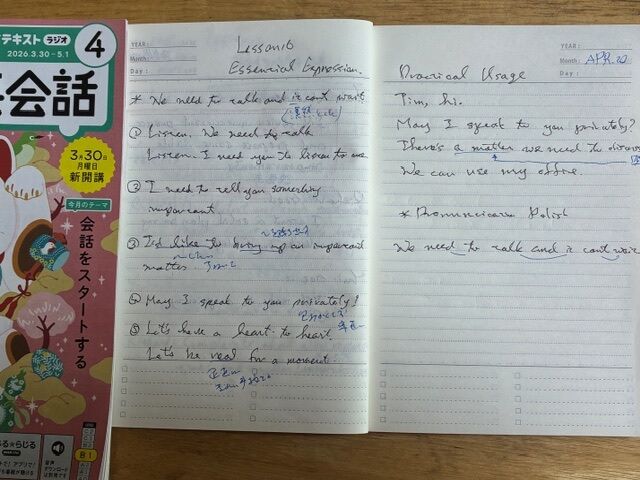 テキスト ラジオ
4
2026.3.30-5.1
英会話
3月30日
月曜日
新開講
今月のテーマ
会話をスタートする
B1
YEAR:
Month:
Day:
Lesson 16
Essential Expression.
* We need to talk and it can't wait
① Listen. We need to talk
Listen. I need you to listen to me
② I need to tell you something
important
③ I'd like to bring up an important
matter
④ May I speak to you privately?
⑤ Let's have a heart-to-heart.
Let's be real for a moment.
YEAR:
Month: APR. 20
Day:
Practical Usage
Tim, hi.
May I speak to you privately?
There's a matter we need to discuss
We can use my office.
* Pronunciation Polish
We need to talk and it can't wait